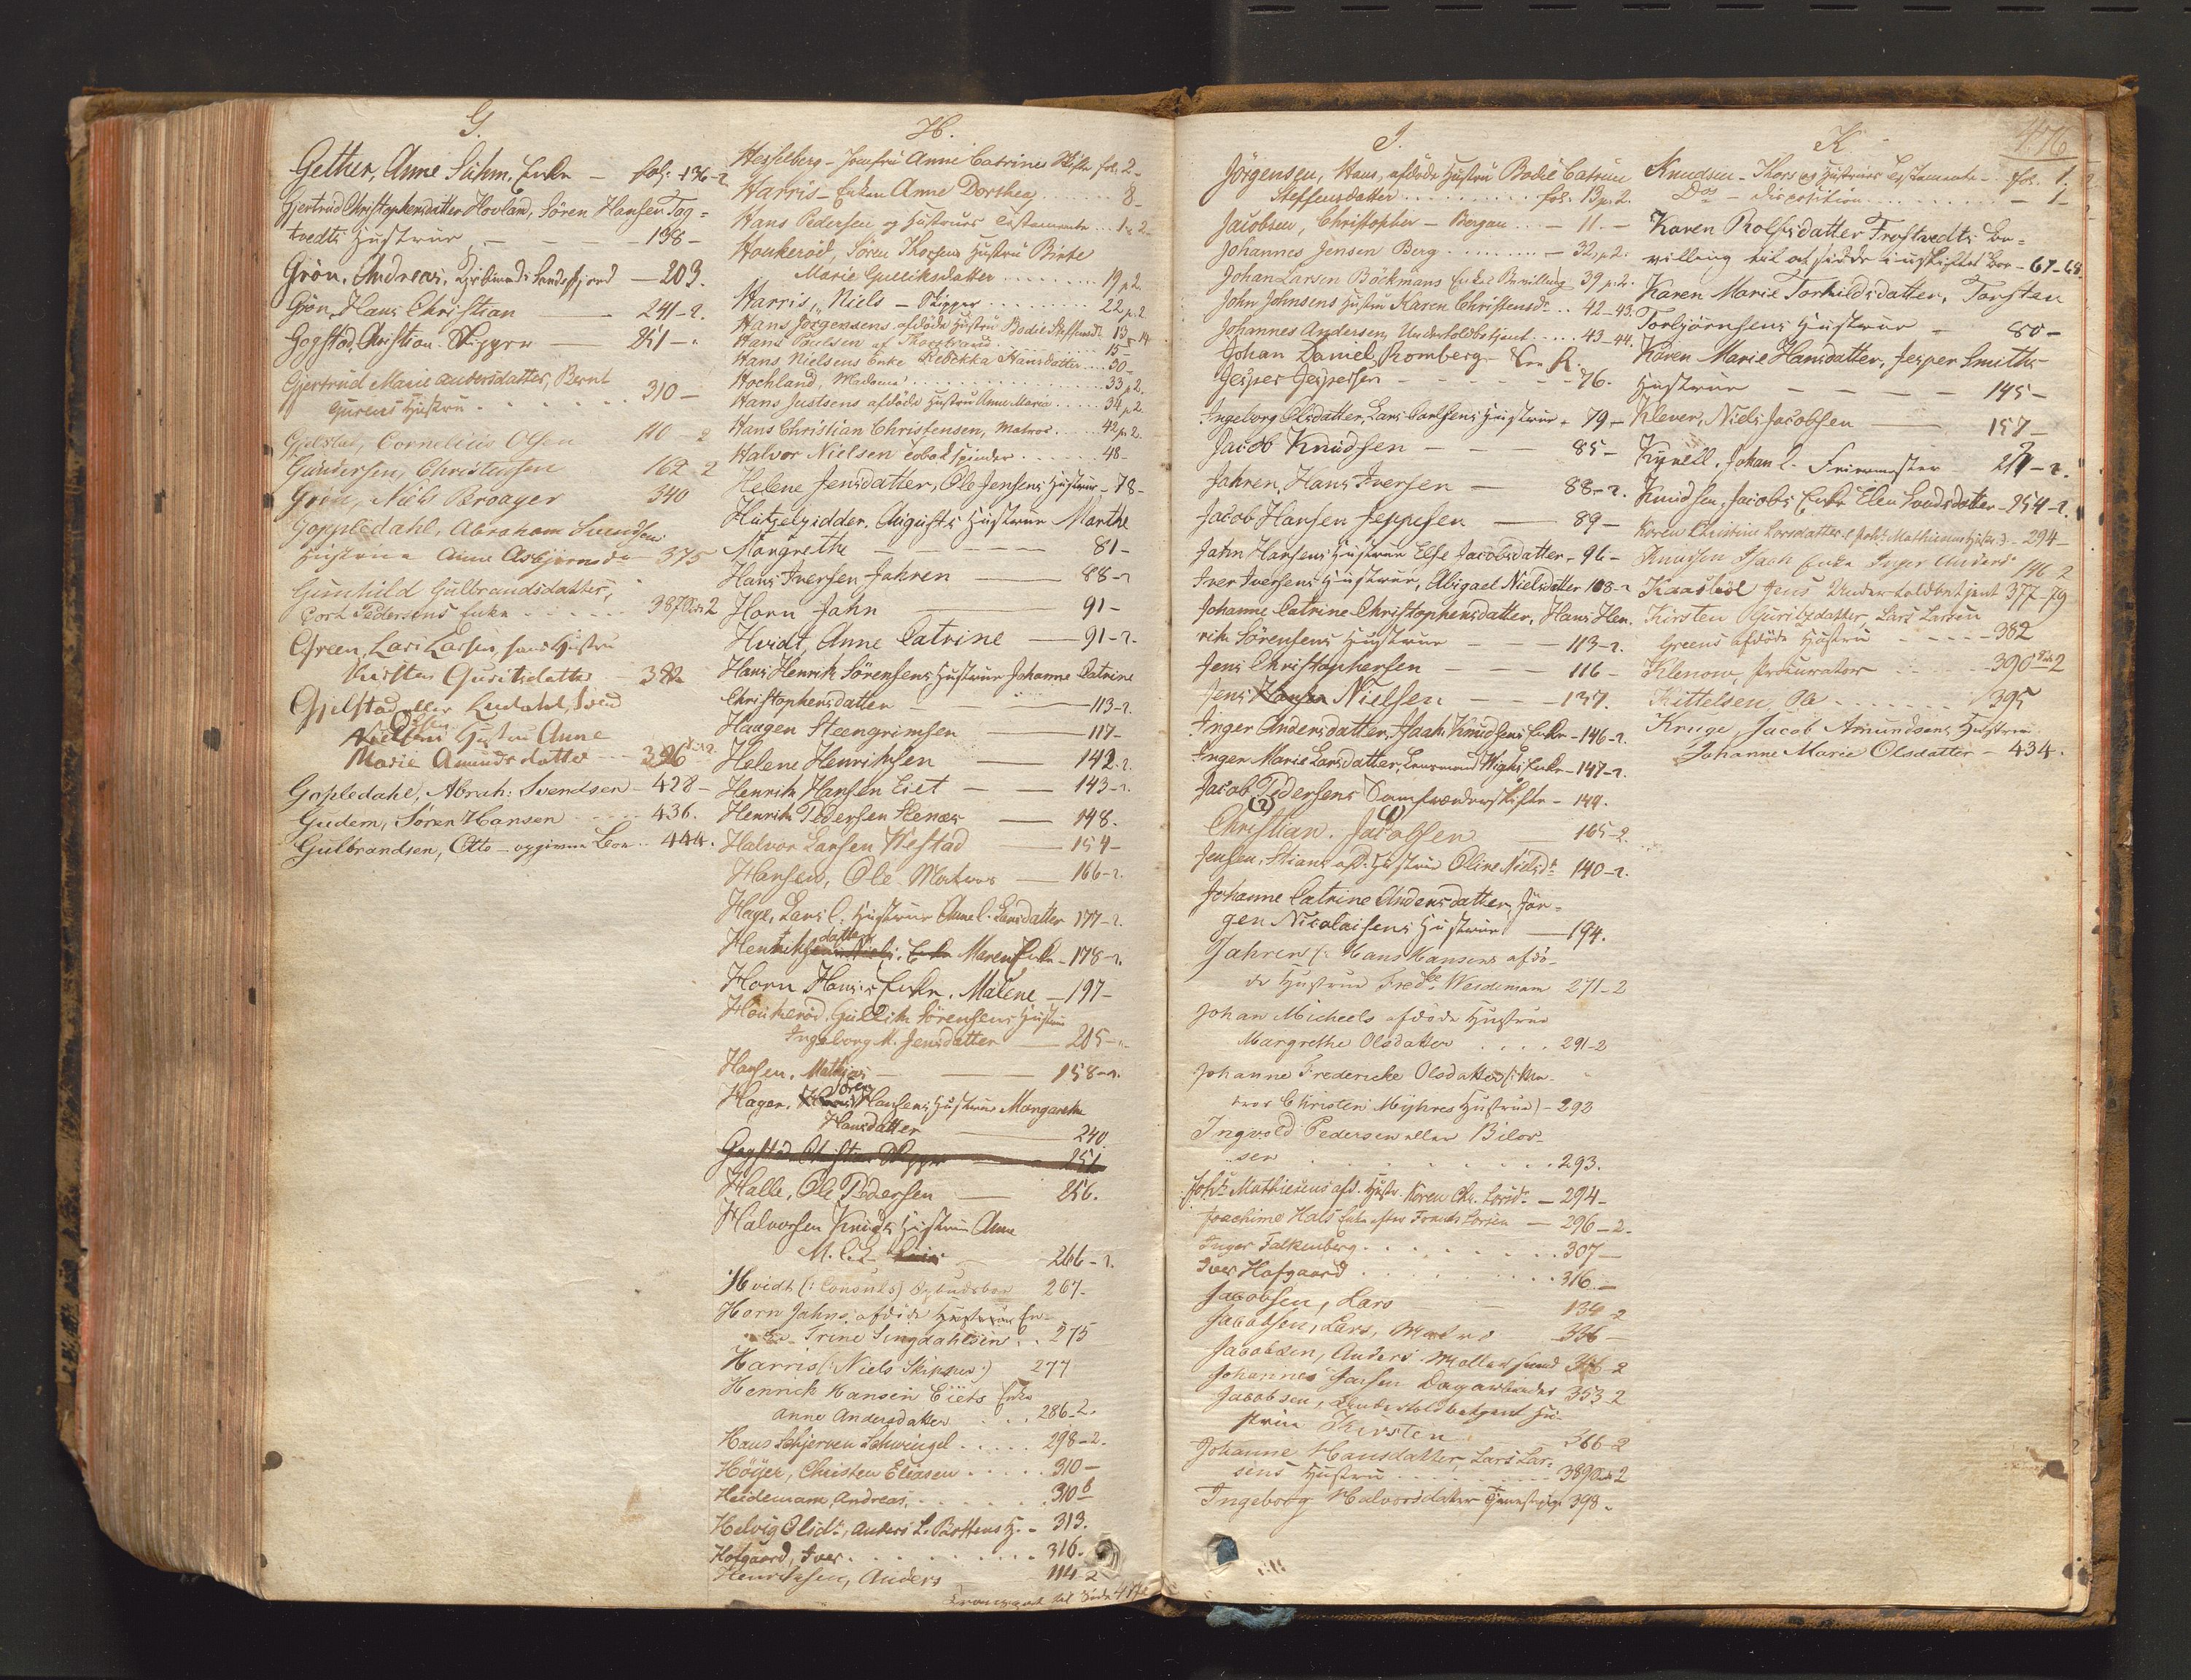 G.
Gether, Anne Suhm, Enke — fol: 136-2
Gjertrud Christophersdatter Hovland, Sören Hansen Tag=
tvedts Hustrue — 138 -
Grön, Andreas, Sandefjord — 203.
Grön, Hans Christian — 241-2.
Gogstad, Christian Skipper — 251 -
Gjertrud Marie Andersdatter, Bernt
Gurens Hustru 310 —
Gjelstad, Cornelius Olsen 110 2
Gundersen, Christensen 162-2
Grön, Niels Broager 340
Goppledahl, Abraham Svendsens
Hustrue Anne Asbjörnsd. 375
Gunhild Gulbrandsdatter,
Cort Pedersens Enke 387 2
Green, Lars Larsen, hans Hustru
Kirsten Guritsdatter 382
Gjelstad eller Lindahl, Svend
Olsen
Hustru Anne
Marie Amundsdatter 396
Gopledahl, Abrah: Svendsen - 428 -
Gudem, Sören Hansen 436.
Gulbrandsen, Otto - opgivne Boe .. 444.
H.
Hesselberg - Jomfru Anne Catrines Skifte fol. 2 -
Harris - Enken Anne Dorthea 8 -
Hans Pedersen og Hustrues Testamente ... 1. 2
Houkeröd, Sören Thorsens Hustru Birte
Marie Gulliksdatter 19 p 2.
Harris, Niels - Skipper 22 p. 2
Hans Jörgensens afdöde Hustru Bodie Steffensd. 13 - 14
Hans Poulsen af Thorstrand 15 -
Hans Nielsens Enke Rebekka Hansdatter ... 30 -
Hochland, Madame 33 p 2.
Hans Justsens afdöde Hustru Anne Maria 34 p 2.
Hans Christian Christensen, Matros 42 p. 2.
Halvor Nielsen Tobakspinder 48 -
Helene Jensdatter, Ole Jensens Hustrue - 78 -
Hützelsidder, Augusts Hustrue Marthe
Margrethe — 81 -
Hans Iversen Jahren — 88-2
Horn Jahn — 91 -
Hvidt, Anne Catrine — 91-2.
Hans Henrik Sörensens Hustrue Johanne Catrine
Christophersdatter — 113-2.
Haagen Steengrimsen — 117 -
Helene Henriksen — 142.2.
Henrik Hansen Eiet — 143-2.
Henrik Pedersen Stenær — 148.
Halvor Larsen Westad — 154 -
Hansen, Ole Matros — 166-2.
Hage, Lars C. Hustrue Anne C. Larsdatter 177-2.
datter
Henriks Maren Enke - 178-2.
Horn Hans's Enke, Malene — 197 -
Houkeröd, Gullik Sörensens Hustru
Ingeborg M. Jensdatter — 205 -
Hansen, Mathias — 158-2.
Sören
Hagen, Hansens Hustrue Margarethe
Hansdatter — 240.
Gogstad Christian Skipper 251
Halle, Ole Pedersen — 256.
Halvorsen Knuds Hustrue Anne
M. C. L. 266-2.
Hvidt (: Consuls) Opbudsboe 267 -
Horn Jahns afdöde Hustrue
Trine Lingdahlsen 275
Harris (: Niels Skipper :) 277
Henrich Hansen Eiets Enke
Anne Andersdatter 286-2.
Hans Schjerven Schwingel 298-2.
Höyer, Christen Eliasen 310 —
Heidemann, Andreas 310 b
Helvig Olsdr, Anders L. Bottens H. - 313.
Hofgaard, Iver 316.
Henriksen, Anders 114-2
Transport til Side 477
I.
Jörgensen, Hans, afdöde Hustru Bodie Catrine
Steffensdatter fol. 13 p. 2.
Jacobsen, Christopher - Bergan — 11. -
Johannes Jensen Berg — 32 p 2.
Johan Larsen Böckmans Enkes Bevilling 39 p. 2.
John Johnsens Hustru Karen Christensdr .. 42-43.
Johannes Andersen, Undertoldbetjent 43-44.
Johan Daniel Romberg - R.
Jesper Jespersen 76.
Ingeborg Olsdatter, Lars Carlsens Hustrue - 79 -
Jacob Knudsen — 85 -
Jahren, Hans Iversen — 88-2.
Jacob Hansen Jeppesen — 89 -
Jahn Hansens Hustrue Else Jacobsdatter - 96 -
Iver Iversens Hustrue, Abigael Nielsdatter 108-2
Johanne Catrine Christophersdatter, Hans Hen-
rik Sörensens Hustrue — 113-2.
Jens Christophersen — 116 -
Jens Hansen Nielsen — 137.
Inger Andersdatter, Isach Knudsens Enke - 146-2.
Inger Marie Larsdatter, Wighs Enke - 147-2.
Jacob Pedersens Samfrændeskifte - 149.
(2) (1)
Christian. Jacobsen 165-2.
Jensen, Stians afd. Hustrue Oline Nielsdr 140-2.
Johanne Catrine Andersdatter, Jör=
gen Nicolaisens Hustrue — 194.
Jahren (: Hans Hansens afdö-
de Hustrue Fredke Weidemann 271-2
Johan Micheels afdöde Hustrue
Margrethe Olsdatter 291-2
Johanne Fredericke Olsdatter (: Ma-
tros Christen Myhres Hustrue) - 292
Ingvold Pedersen eller Bilov-
sen 293.
Johs Mathiesens afd. Hustr. Karen Chr. Larsdr - 294 -
Joachime Hals Enke efter Frands Larsen — 296-2.
Inger Falkenberg 307 —
Iver Hofgaard 316. —
Jacobsen, Lars 134-2
Jacobsen, Lars, Matros 336 -
Jacobsen, Anders Mollersund 346-2
Johannes Jansen Dagarbeider 353-2
Jacobsen, Undertoldbetjent Hu-
strue Kirsten 366-2
Johanne Hansdatter, Lars Lar-
sens Hustru 389 2
Ingeborg Halvorsdatter Tjenestepige 398.
K.
476
Knudsen - Thors og Hustrues Testamente - fol. 1.
Do - disposition — 1 -
Karen Rolfsdatter Trostvedts Be=
villing til at sidde i uskiftet Boe - 67-68
Karen Marie Torkildsdatter, Torsten
Torbjörnsens Hustrue — 80 -
Karen Marie Hansdatter, Jesper Smiths
Hustrue — 145 -
Klever, Niels Jacobsen — 157 -
Kyrell, Johan L. Feiermester 211-2.
Knudsen, Jacobs Enke Elen Larsdatter - 254-2.
Karen Christine Larsdatter (Johs Mathiesens Hustr:) - 294 -
Knudsen Isach Enke Inger Andersdr 146 2
Kaasböl Jens Undertoldbetjent 377-79
Kirsten Guritzdatter, Lars Larsen
Greens afdöde Hustru 382
Klenow, Prokurator 390 2
Kittelsen, Ole 395
Kruge, Jacob Amundsens Hustrue
Johanne Marie Olsdatter - 434.